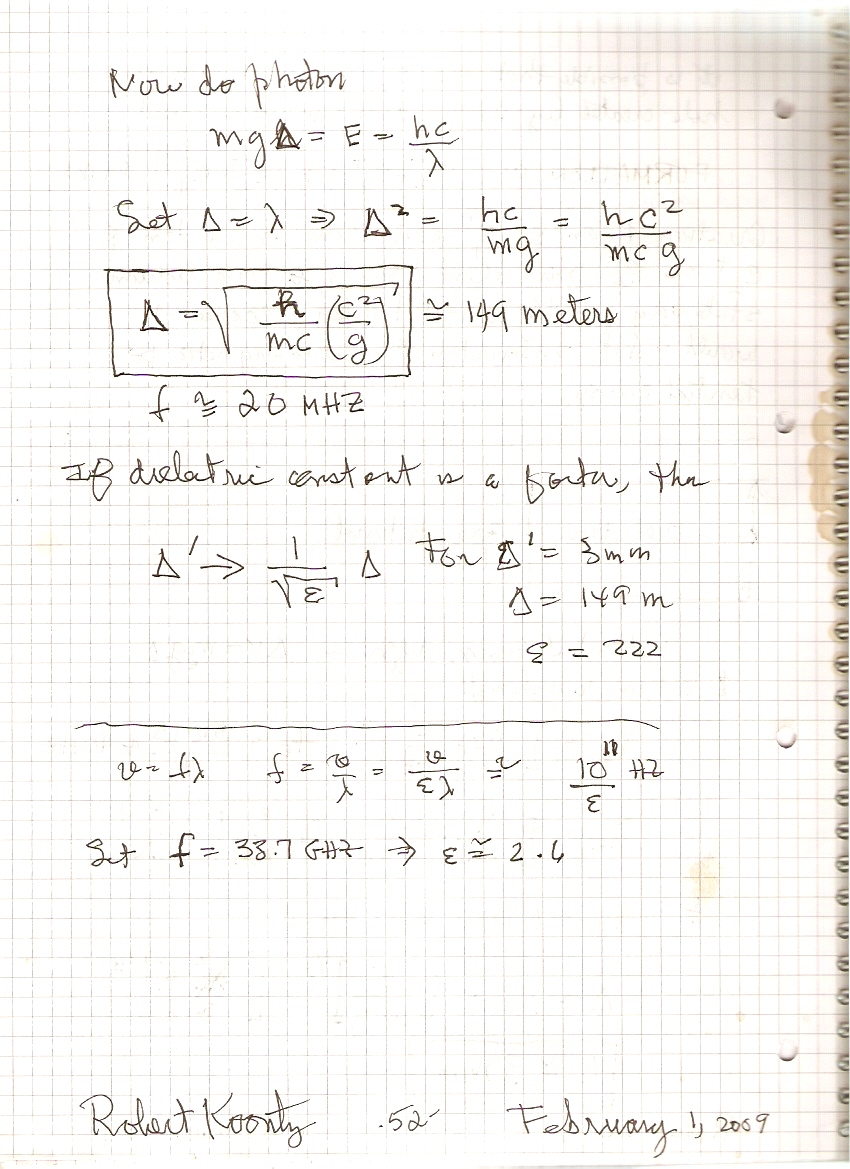 Now do photon
mgΔ = E = hc/λ
Set Δ = λ ⇒ Δ² = hc/mg = hc²/mcg
Δ = √(ħ/mc (c²/g)) ≅ 149 meters
f ≅ 20 MHZ
If dielectric constant is a factor, then
Δ' → 1/√ε Δ For Δ' = 3mm
Δ = 149 m
ε = 222
v = fλ f = v/λ = v/ελ ≅ 10¹¹/ε HZ
Set f = 38.7 GHZ ⇒ ε ≅ 2.6
Robert Koontz .52- February 1, 2009